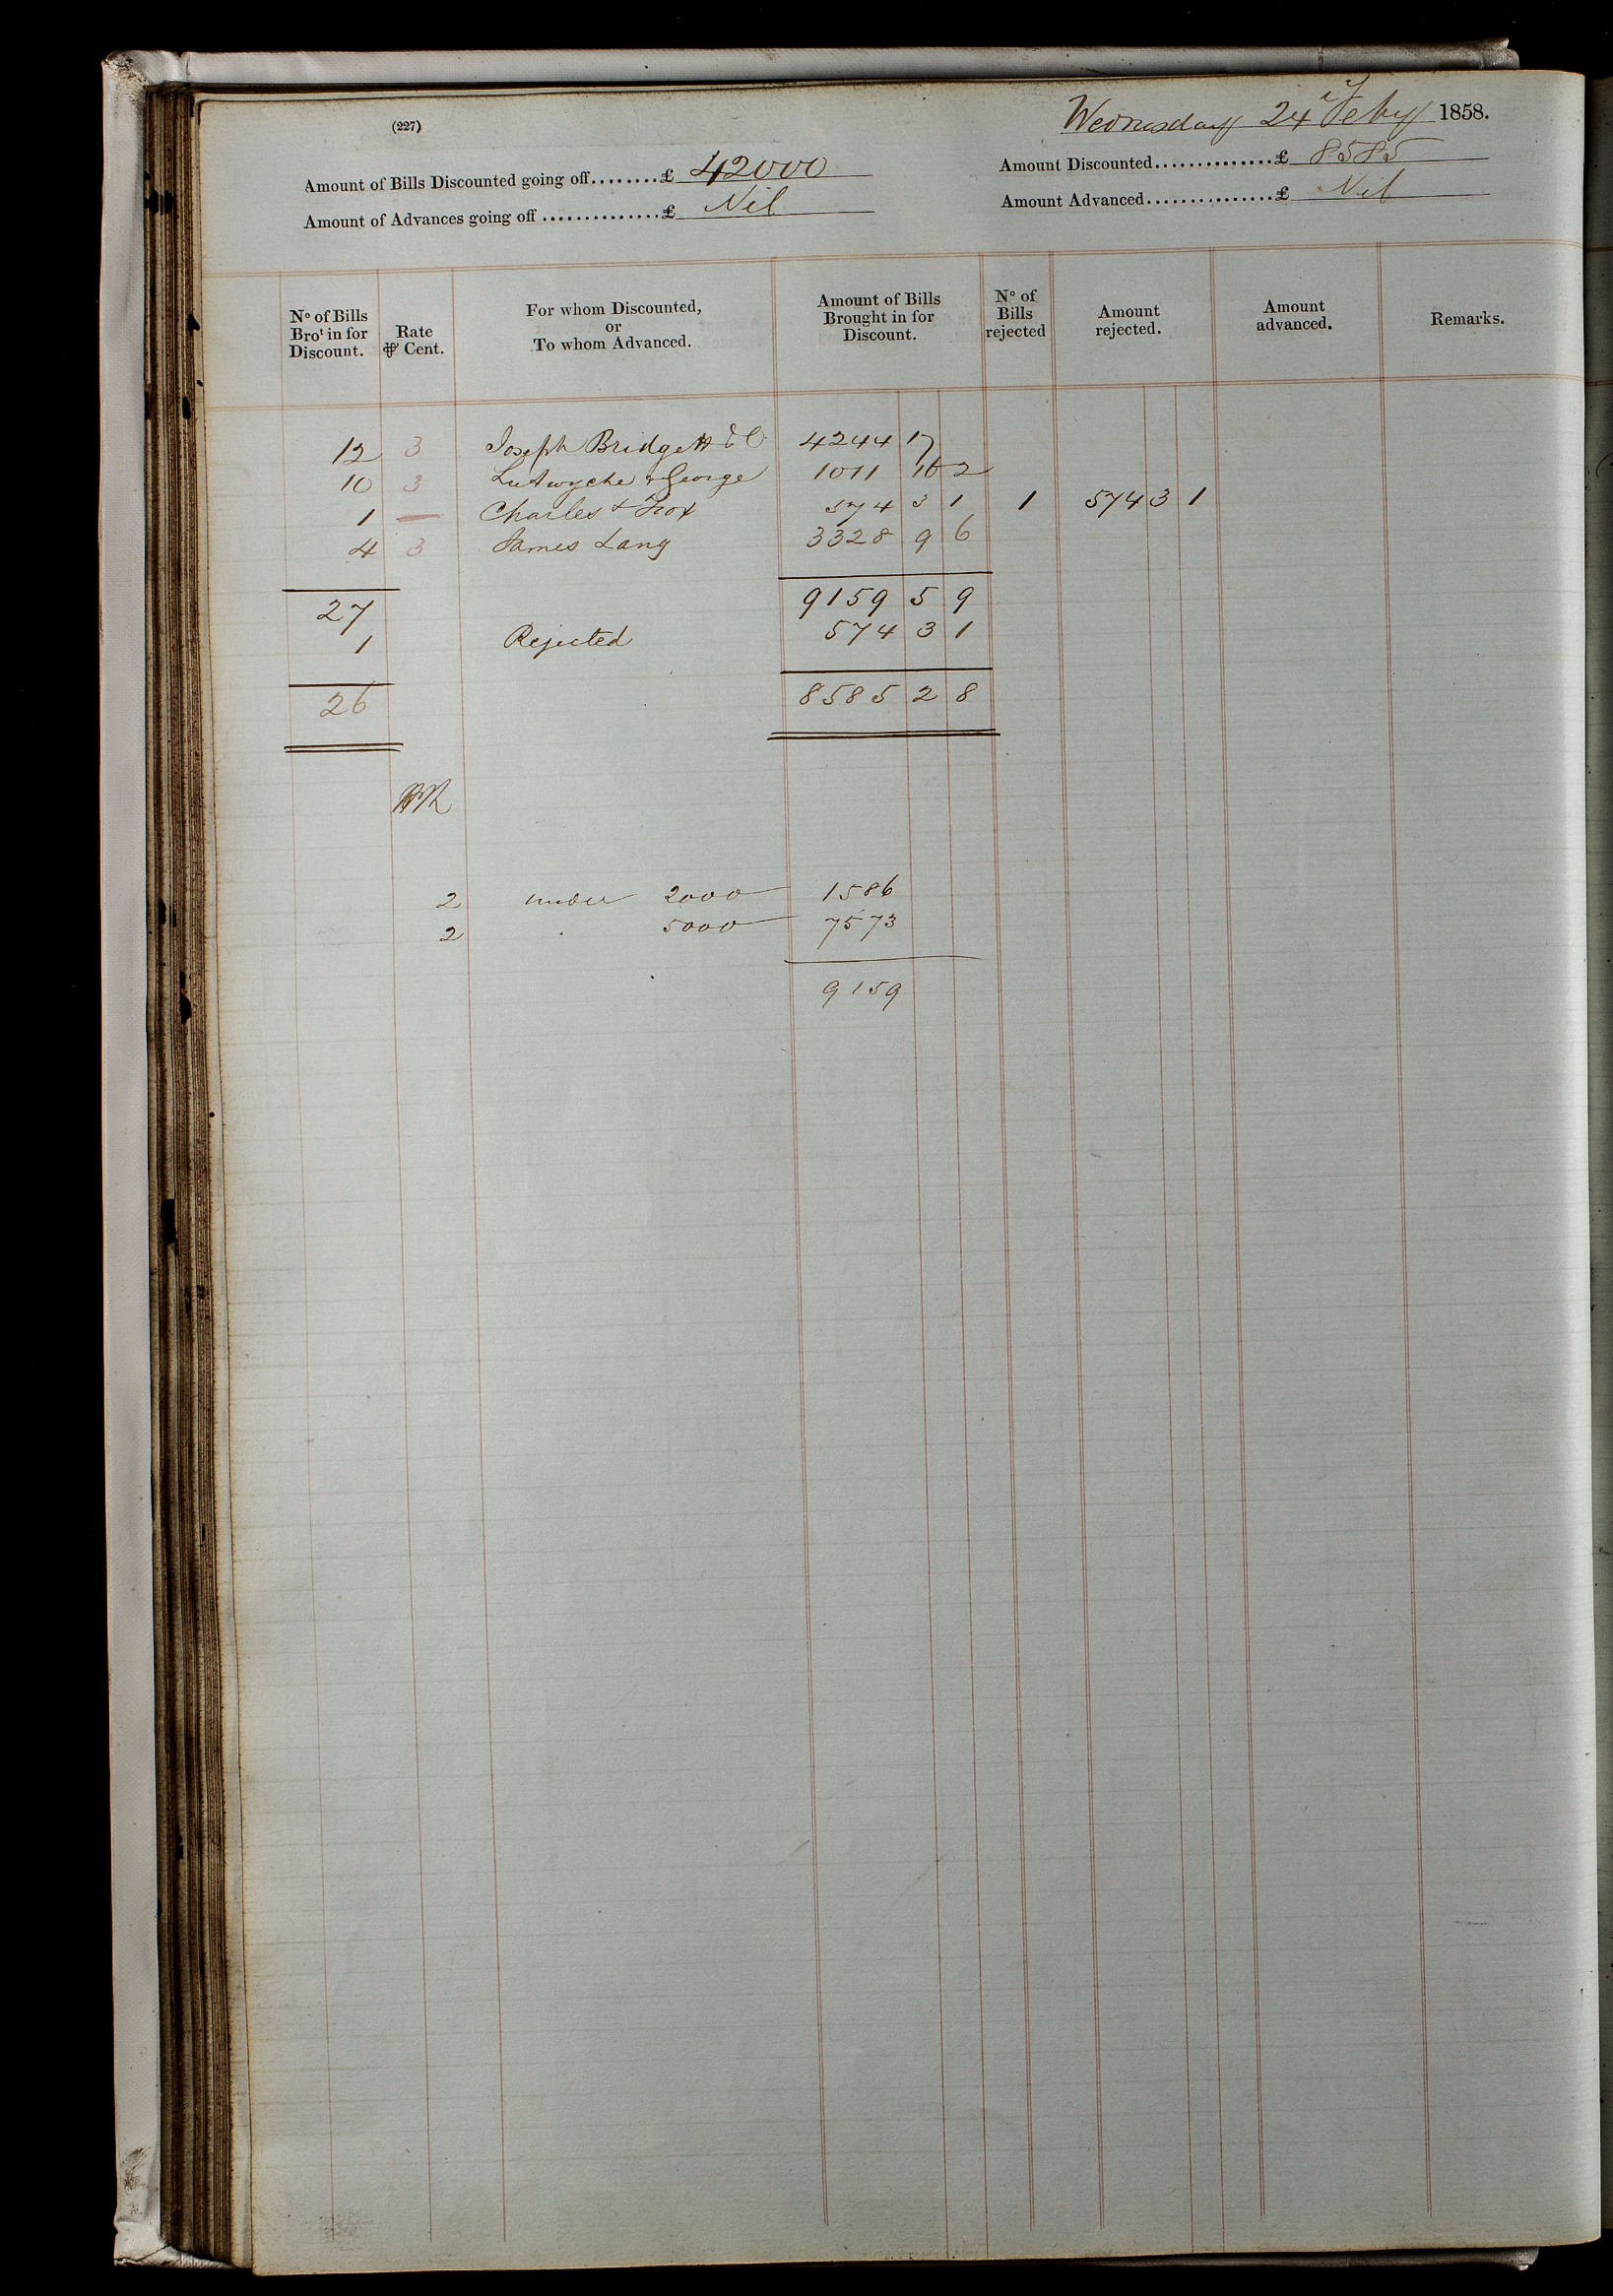 (227)
Wednesday 24 Feby 1858.
Amount of Bills Discounted going off........£ 42000
Amount Discounted..............£ 8585
Amount of Advances going off ..............£ Nil
Amount Advanced...............£ Nil
No of Bills Brot in for Discount. | Rate ⅌ Cent. | For whom Discounted, or To whom Advanced. | Amount of Bills Brought in for Discount. | No of Bills rejected | Amount rejected. | Amount advanced. | Remarks.
12 3 Joseph Bridgett & Co 4244 17
10 3 Lutwyche & George 1011 16 2
1 — Charles & Fox 574 3 1 1 574 3 1
4 3 James Lang 3328 9 6
27 9159 5 9
1 Rejected 574 3 1
26 8585 2 8
2 under 2000 1586
2 . 5000 7573
9159